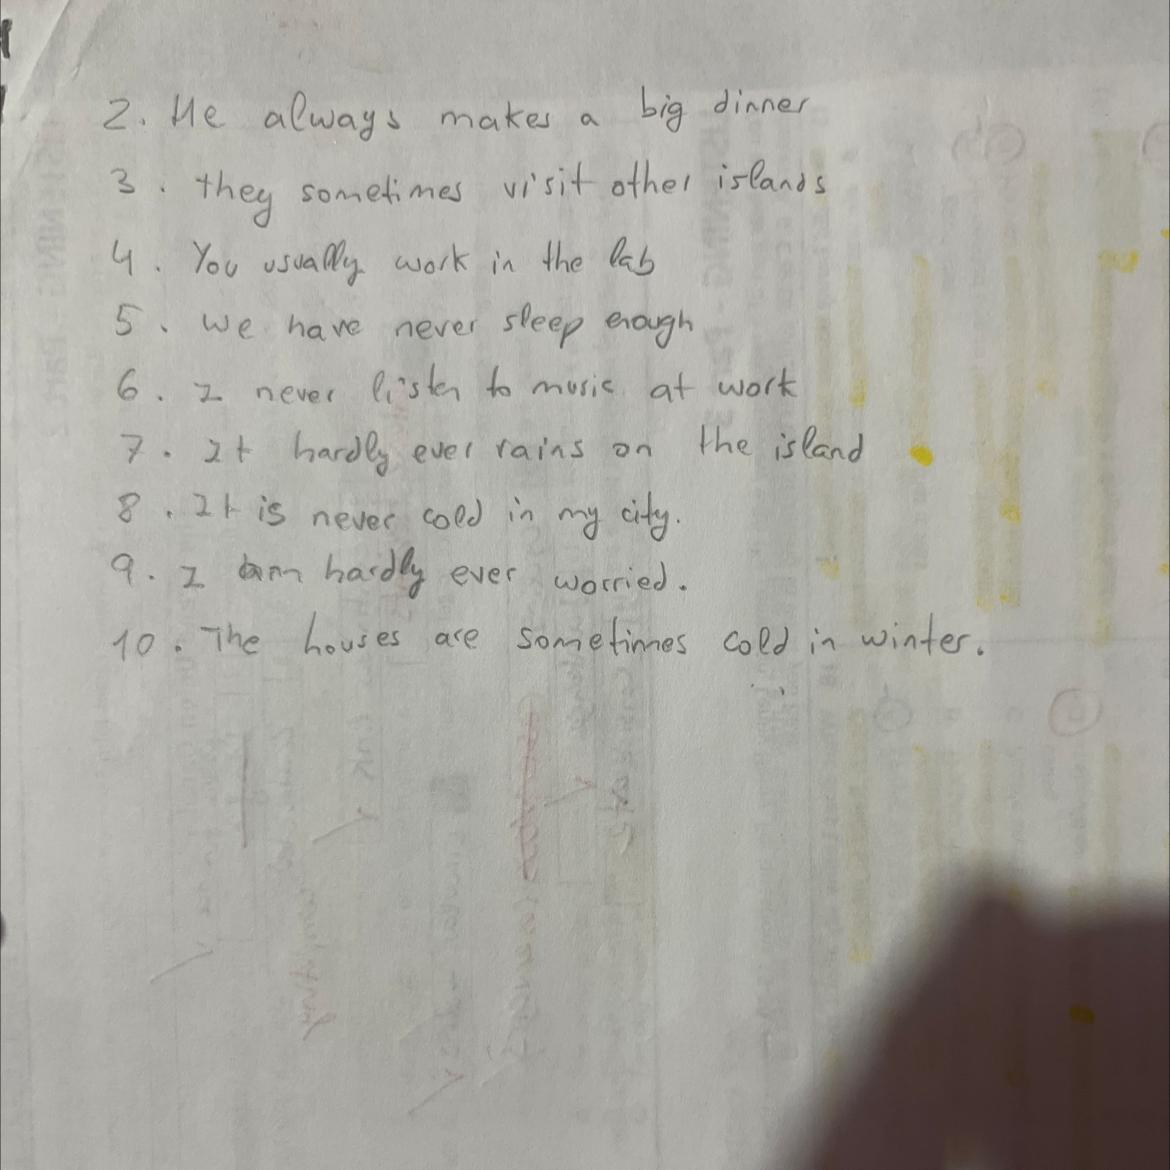 2. He always makes a big dinner
3. they sometimes visit other islands
4. You usually work in the lab
5. we have never sleep enough
6. I never listen to music at work
7. It hardly ever rains on the island
8. It is never cold in my city.
9. I am hardly ever worried.
10. The houses are sometimes cold in winter.